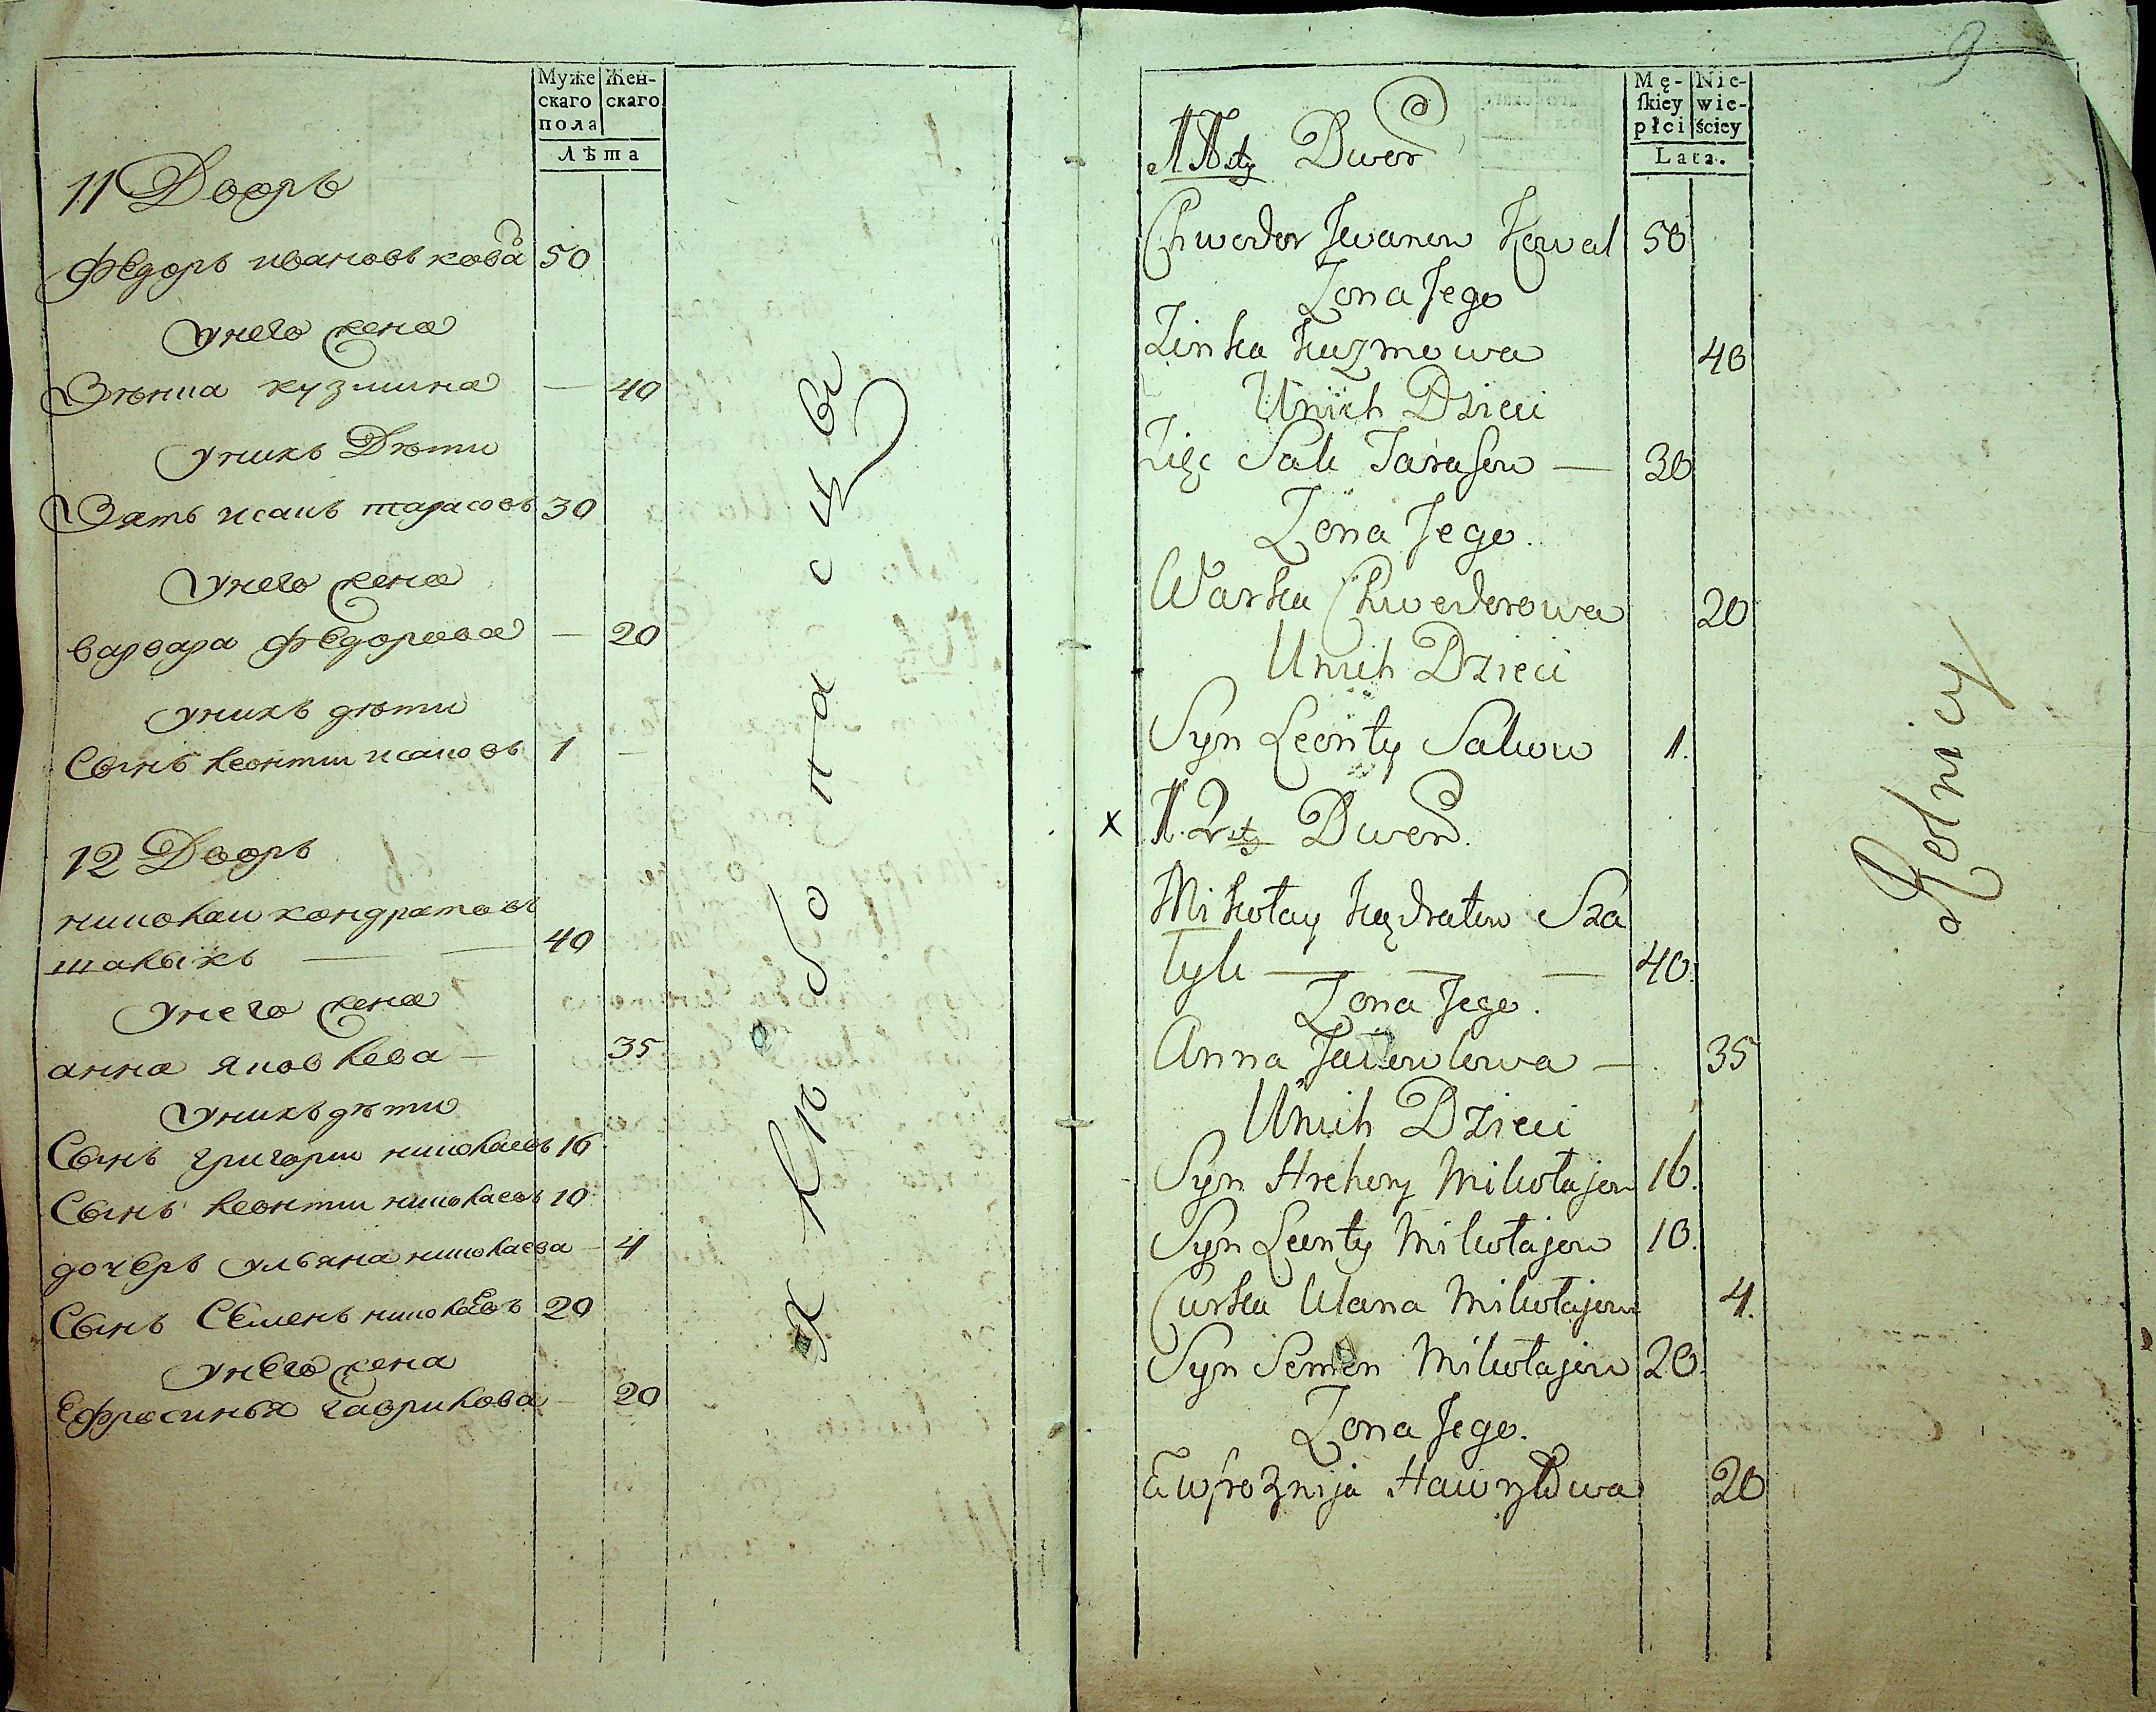 Муже
скаго
пола
Жен-
скаго
Лѣта
11 Дворъ
Федоръ ивановъ ковал 50
унего жена
Зѣнка кузмина — 40
унихъ Дѣти
Зять исакъ тарасовъ 30
унего жена
варвара Федорова — 20
унихъ дѣти
Сынъ леонтии исаковъ 1 —
12 Дворъ
николаи кондратовъ
шалыкъ — — 40
унего жена
анна яковлева — 35
унихъ дѣти
Сынъ григории николаевъ 16
Сынъ леонтии николаевъ 10
дочерь ульяна николаева — 4
Сынъ Семенъ николаевъ 20
унего жена
Ефросинья гаврилова — 20
хлѣбопащцы
9
Mę-
ſkiey
płci
Nie-
wie-
ściey
Lata.
11sty Dwor
Chwedor Jwanow Kowal 50
Zona Jego
Zinka Kuzmowa 40
Unich Dzieci
Zięc Sak Tarasow — 30
Zona Jego.
Warka Chwedorowa 20
Unich Dzieci
Syn Leonty Sakow 1.
x 12sty Dwor.
Mikołay Kądratow Sza
łyk — — — 40.
Zona Jego.
Anna Jakowlowa — 35
Unich Dzieci
Syn Hrehory Mikołajow 16.
Syn Leonty Mikołajow 10.
Curka Ulana Mikołajow 4.
Syn Semen Mikołajow 20.
Zona Jego.
Ewfroznija Hawryłowa 20
Rolnicy